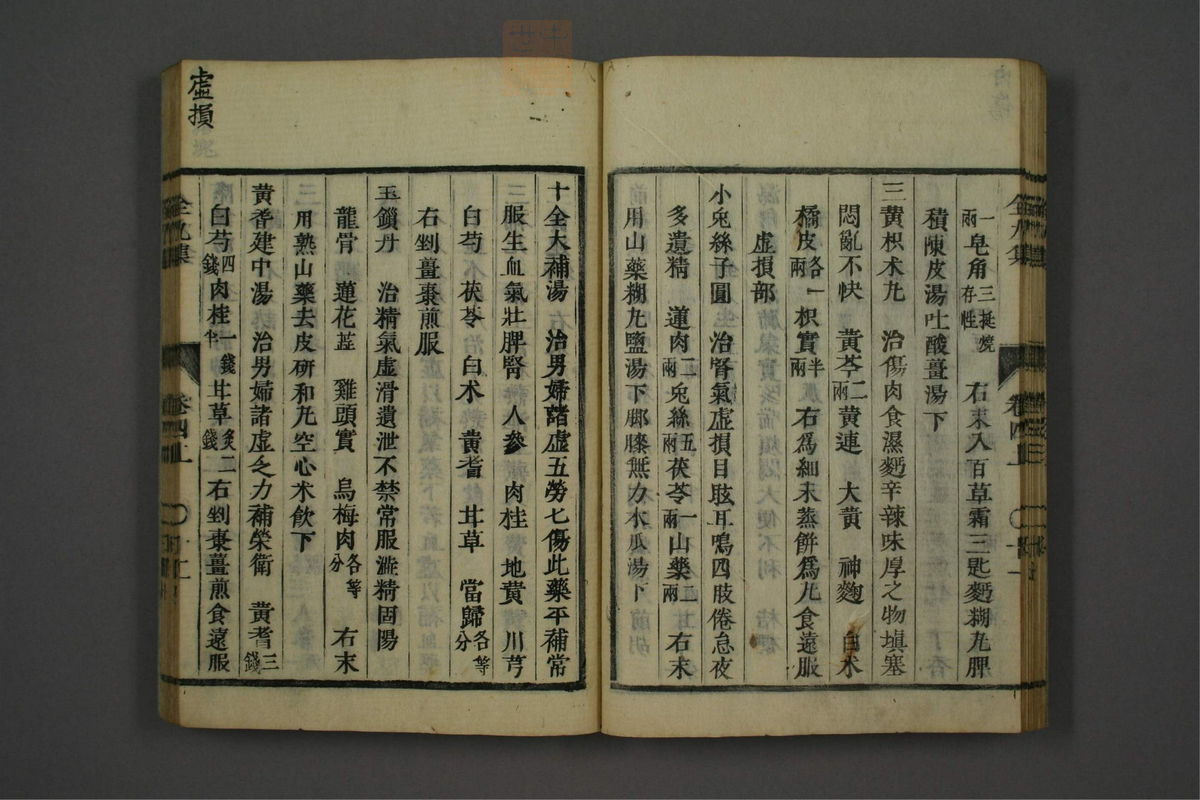 一兩皂角三挺燒存性　右末入百草霜三匙麪糊九脾
積陳皮湯吐酸薑湯下
三黃枳朮丸　治傷肉食濕麪辛辣味厚之物塡塞
悶亂不快　黃芩二兩黃連　大黃　神麯　白朮
橘皮各一兩枳實半兩右爲細末蒸餅爲丸食遠服
虛損部
小兔絲子圓　治腎氣虛損目眩耳鳴四肢倦怠夜
多遺精　蓮肉二兩兔絲五兩茯苓一兩山藥二兩右末
用山藥糊丸鹽湯下脚膝無力木瓜湯下
十全大補湯　治男婦諸虛五勞七傷此藥平補常
服生血氣壯脾腎　人參　肉桂　地黃　川芎
白芍　茯苓　白朮　黃耆　甘草　當歸各等分
右剉薑棗煎服
玉鎖丹　治精氣虛滑遺泄不禁常服澁精固陽
龍骨　蓮花蘂　雞頭實　烏梅肉各等分　右末
用熟山藥去皮研和丸空心米飲下
黃耆建中湯　治男婦諸虛之力補榮衛　黃耆三錢
白芍四錢肉桂一錢半甘草炙二錢右剉棗薑煎食遠服
虛損
全九集
卷四上